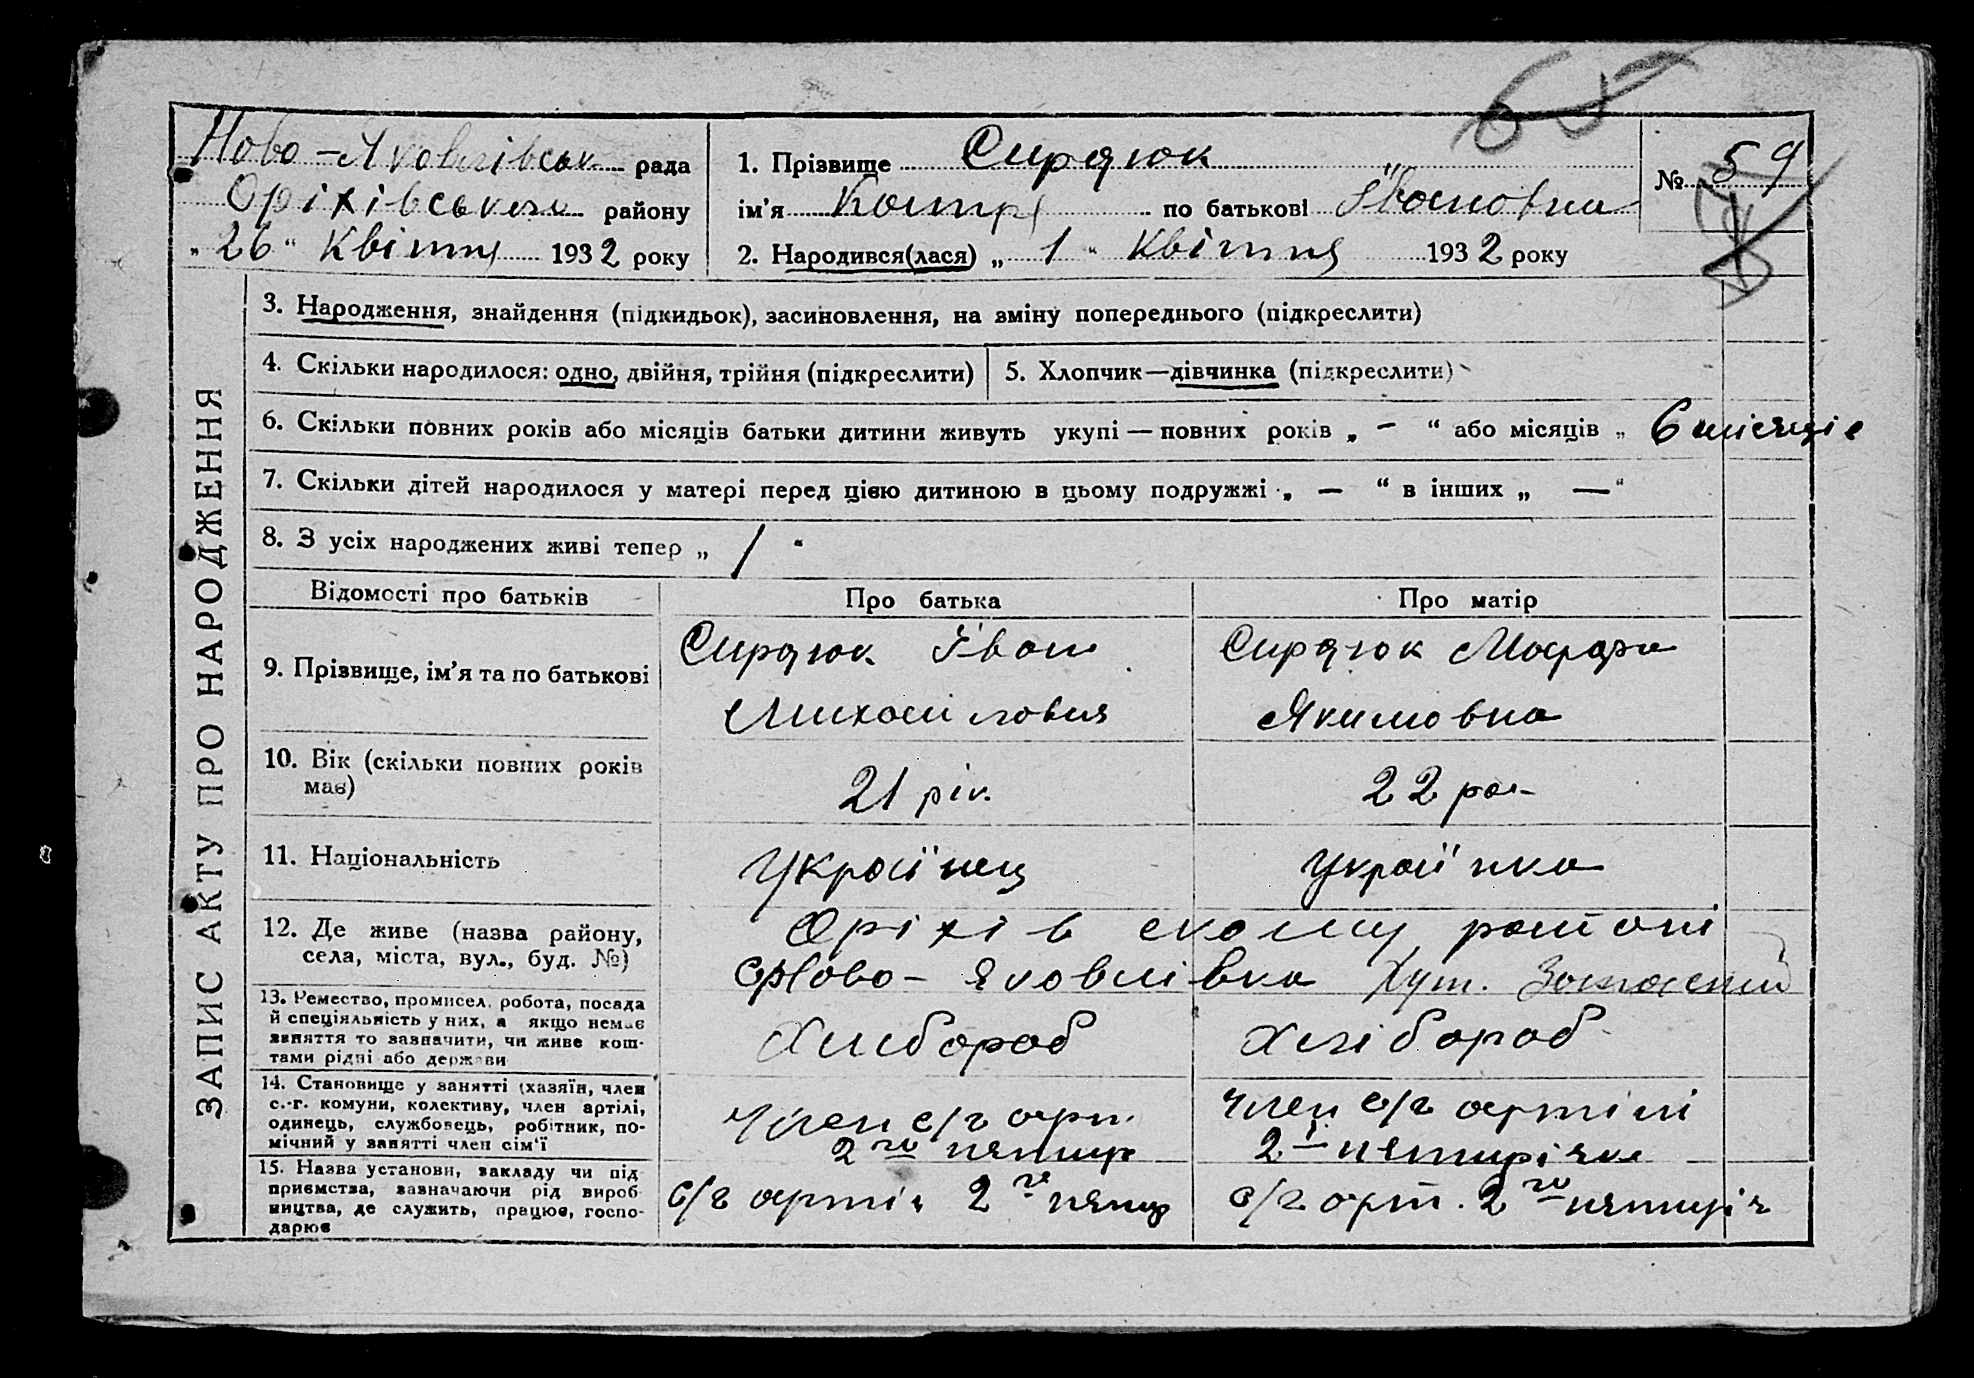 65
Ново-Яковлівськ рада
Оріхівського району
„ 26 “ Квітня 1932 року
1. Прізвище Сирдюк
ім'я Катря по батькові Івановна
2. Народився(лася) „ 1 “ Квітня 1932 року
№ 59
ЗАПИС АКТУ ПРО НАРОДЖЕННЯ
3. Народження, знайдення (підкидьок), засиновлення, на зміну попереднього (підкреслити)
4. Скільки народилося: одно, двійня, трійня (підкреслити)
5. Хлопчик—дівчинка (підкреслити)
6. Скільки повних років або місяців батьки дитини живуть укупі — повних років „ – “ або місяців „ 6 місяців
7. Скільки дітей народилося у матері перед цією дитиною в цьому подружжі „ — “ в інших „ — “
8. З усіх народжених живі тепер „ 1 “
Відомості про батьків
Про батька
Про матір
9. Прізвище, ім'я та по батькові
Сирдюк Іван
Михайлович
Сирдюк
Якимовна
10. Вік (скільки повних років
має)
21 рік
22 рок
11. Національність
Українець
Українка
12. Де живе (назва району,
села, міста, вул., буд. №)
Оріхівському районі
Ново-Яковлівка Хут.
13. Ремество, промисел, робота, посада
й спеціяльність у них, а якщо немає
заняття то зазначити, чи живе кош-
тами рідні або держави
Хлібороб
Хлібороб
14. Становище у занятті (хазяїн, член
с.-г. комуни, колективу, член артілі,
одинець, службовець, робітник, по-
мічний у занятті член сім'ї
Член с/г арт.
2го пятир
член с/г артілі
2ї пятирічки
15. Назва установи, закладу чи під
приємства, зазначаючи рід вироб
ництва, де служить, працює, госпо-
дарює
с/г артіл 2го пятир
с/г арт. 2го пятиріч